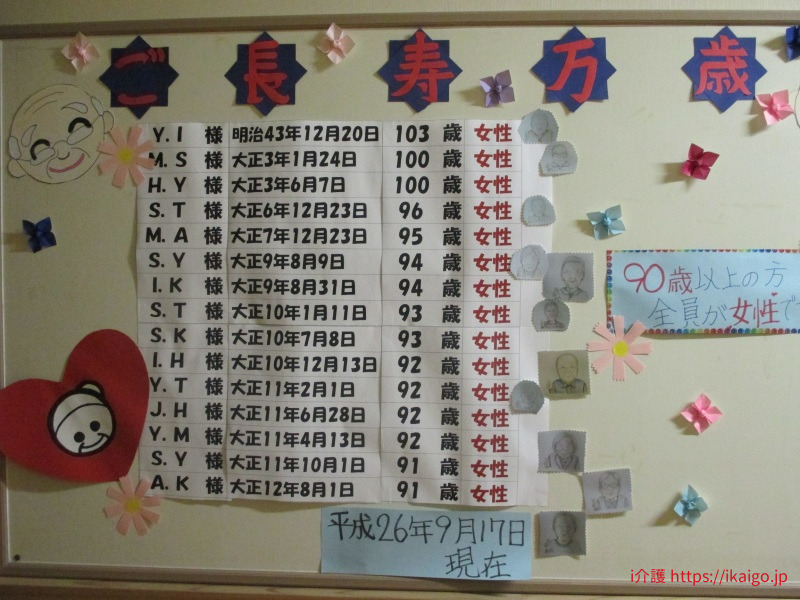 ご長寿万歳
Y. I 様 明治43年12月20日 103 歳 女性
M. S 様 大正3年1月24日 100 歳 女性
H. Y 様 大正3年6月7日 100 歳 女性
S. T 様 大正6年12月23日 96 歳 女性
M. A 様 大正7年12月23日 95 歳 女性
S. Y 様 大正9年8月9日 94 歳 女性
I. K 様 大正9年8月31日 94 歳 女性
S. T 様 大正10年1月11日 93 歳 女性
S. K 様 大正10年7月8日 93 歳 女性
I. H 様 大正10年12月13日 92 歳 女性
Y. T 様 大正11年2月1日 92 歳 女性
J. H 様 大正11年6月28日 92 歳 女性
Y. M 様 大正11年4月13日 92 歳 女性
S. Y 様 大正11年10月1日 91 歳 女性
A. K 様 大正12年8月1日 91 歳 女性
90歳以上の方
全員が女性で
平成26年9月17日
現在
i介護 https://ikaigo.jp